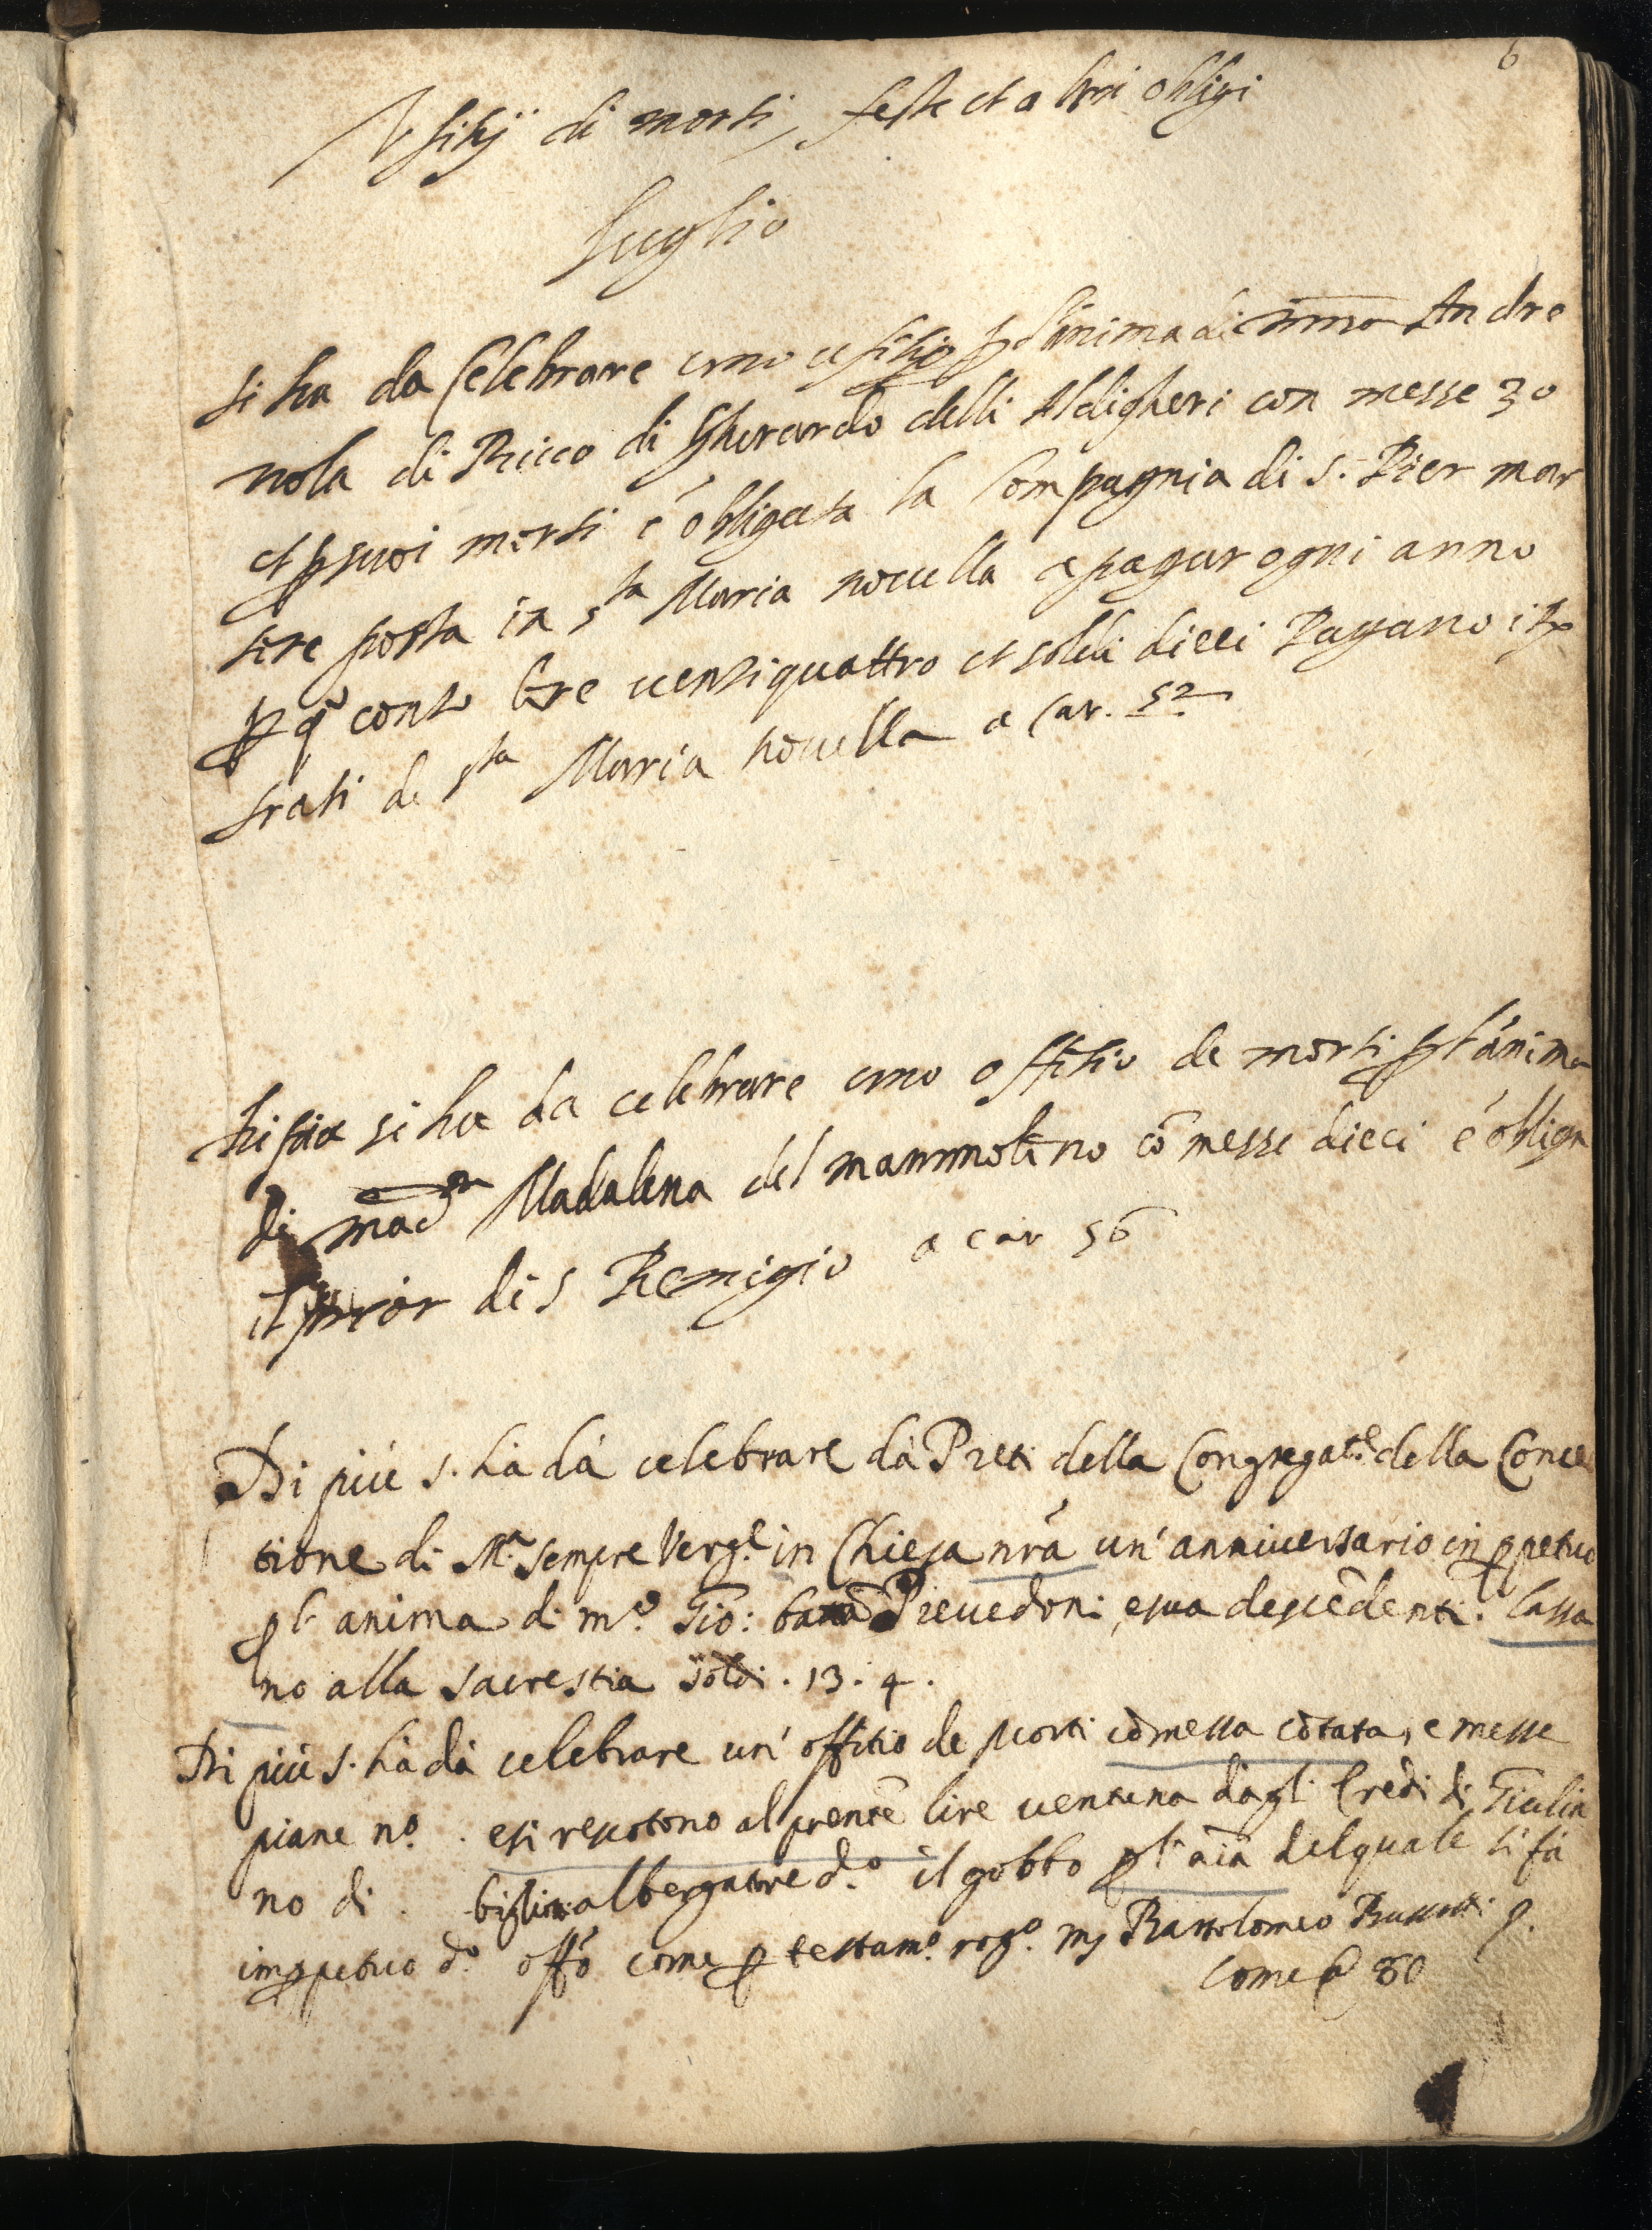 6
Vfitij di morti, feste et altri oblighi
luglio
si ha da Celebrare uno ufitio p l'anima di mma Andre
nola di Ricco di Gherardo delli Aldigheri con messe 30
et p suoi morti é obligata la Compagnia di S. Pier mar
tire posta in s.ta Maria novella a pagar ogni anno
p q.o conto lire ventiquattro et soldi dieci Pagano i Rx
frati de s.ta Maria novella a Car. 52
si ha da celebrare uno offitio de morti p l'ánima
di mad.na Madalena del mammolino cō messe dieci é obliga
il prior di S Remigio a car 56
Di piú s. hà dà celebrare dà Preti della Congregat.e della Conce
tione di M.a sempre Verg.e in Chiesa nrā un' anniversario in ppetuo
p l' anima di m.o Gio: batta Prevedoni, e sua descēdenti. lassa
no alla sacrestia soldi . 13 . 4 .
Di piú s. hà dà celebrare un' offitio de Morti cō messa cātata, e messe
piane n.o . e si rescotono al prente lire ventuna dagl' Eredi di Giulia
no di . albergatore d.o il gobbo p l' aīa del quale si fá
in ppetuo d.o offo come p testam.o rog.o ms Bartolomeo
Come a 80